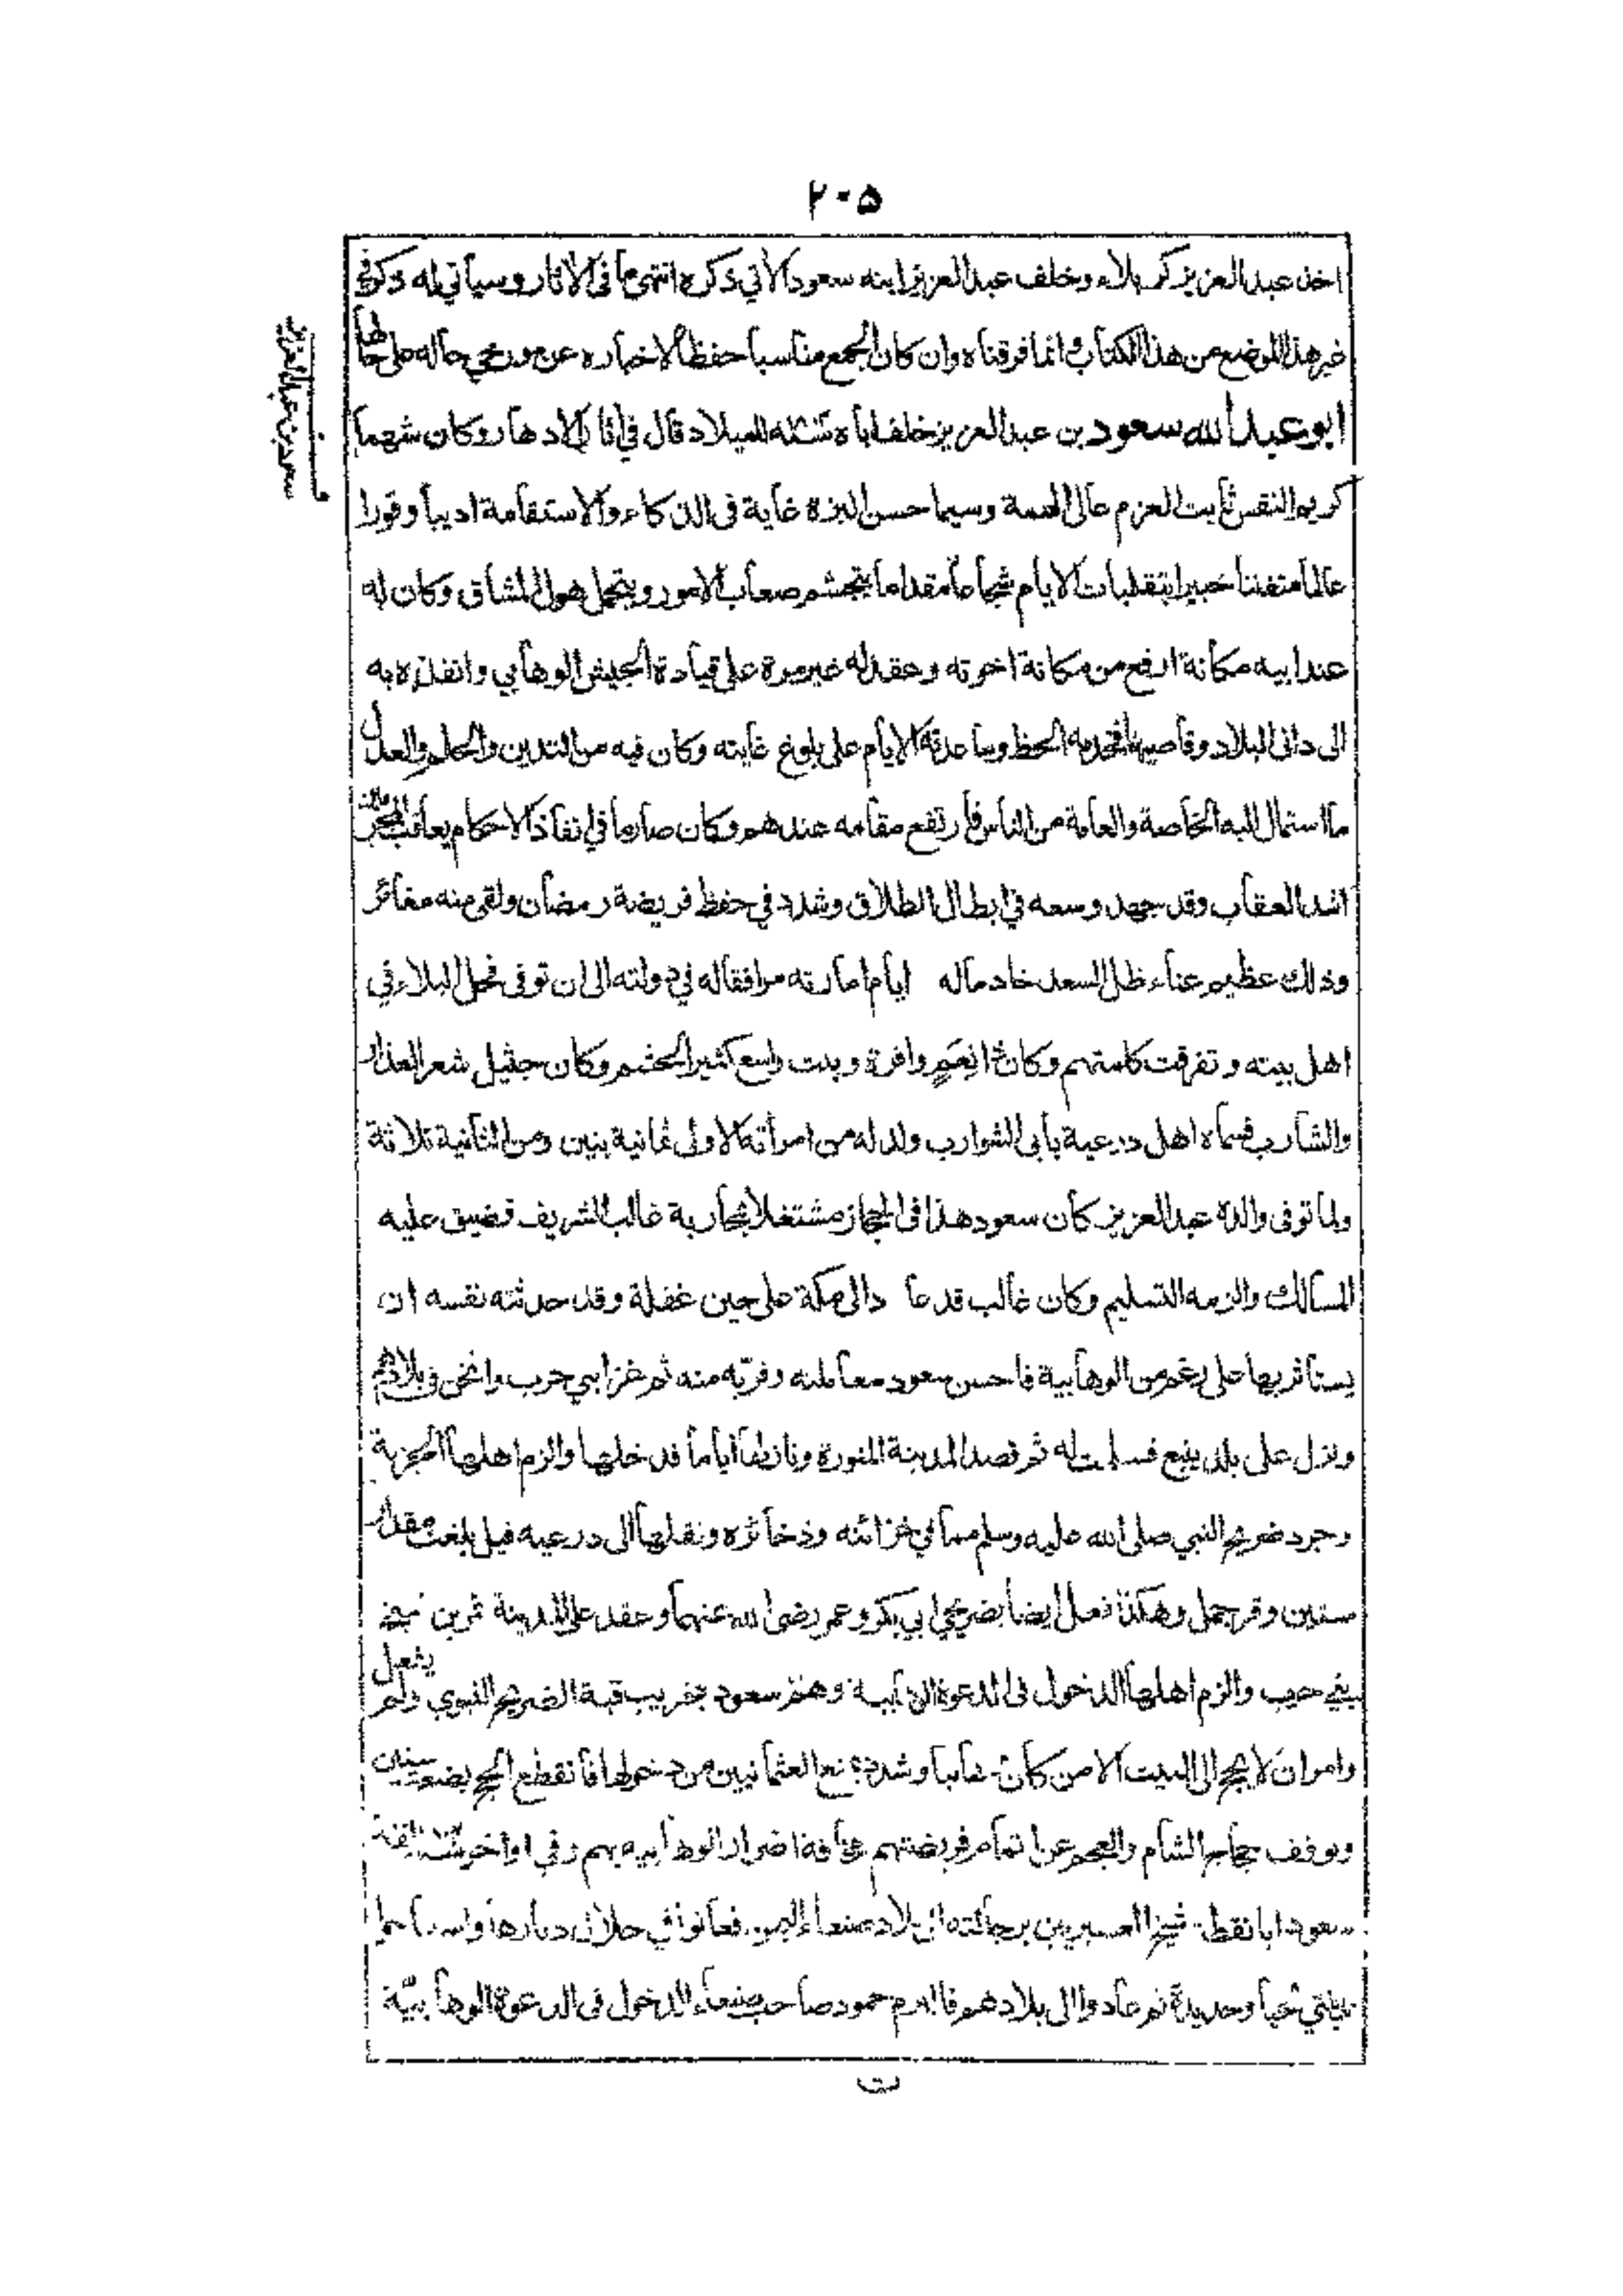 ٢٠٥
اخذ عبد العزيز كربلاء وخلف عبد العزيز ابنه سعود الاتي ذكره انتهى ما في الاثار وسياتي له ذكر في
غير هذا الموضع من هذا الكتاب وانما فرقناه وان كان الجمع مناسبا حفظا لاخباره عن مورخي حاله على حالها
سعود بن عبد العزيز
ابو عبد الله سعود بن عبد العزيز خلف اباه للميلاد قال في اثار الادهار وكان شهما
كريم النفس ثابت العزم عالى الهمة وسيما حسن البزة غاية فى الذكاء والاستقامة اديبا وقورا
عالما متفننا خبيرا بتقلبات الايام شجاعا مقداما يتجشم صعاب الامور ويتحمل هول المشاق وكان له
عند ابيه مكانة ارفع من مكانة اخوته وعقد له غير مرة على قيادة الجيش الوهابي وانفذه به
الى دانى البلاد وقاصيها فخدمه الحظ وساعدته الايام على بلوغ غايته وكان فيه من التدين والحلم والعدل
ما استمال اليه الخاصة والعامة من الناس فارتفع مقامه عندهم وكان صارما في انفاذ الاحكام يعاقب
اشد العقاب وقد جهد وسعه في ابطال الطلاق وشدد في حفظ فريضة رمضان ولقى منه مغائر
وذلك عظيم عناء ظل السعد خادما له ايام امارته مرافقا له في دولته الى ان توفى فحل البلاء في
اهل بيته وتفرقت كلمتهم وكان ذا نعم وافرة وبيت واسع كثير الحشم وكان جثيل شعر العذار
والشارب فسماه اهل درعية بابى الشوارب ولد له من امرأته الاولى ثمانية بنين ومن الثانية ثلاثة
ولما توفى والده عبد العزيز كان سعود هذا فى الحجاز مشتغلا بمحاربة غالب الشريف فضيق عليه
المسالك والزمه التسليم وكان غالب قد عا د الى مكة على حين غفلة وقد حدثته نفسه ان
يستأثر بها على رغم من الوهابية فاحسن سعود معاملته وقربه منه ثم غزا بني حرب واثخن في بلادهم
ونزل على بلد ينبع فسلمت له ثم قصد المدينة المنورة ونازلها اياما فدخلها والزم اهلها الجزية
وجرد ضريح النبي صلى الله عليه وسلم مما في خزائنه وذخائره ونقلها الى درعية قيل بلغت مقدار
ستين وقر جمل وهكذا فعل ايضا بضريحي ابي بكر وعمر رضى الله عنهما وعقد على المدينة شيخ
بني حرب والزم اهلها الدخول فى الدعوة الوهابية وهم سعود بتخريب قبة الضريح النبوي ولم يفعل
وامر ان لا يحج الى البيت الا من كان وهابيا وشدد في منع العثمانيين من دخولها فانقطع الحج بضع سنين
وتوقف حجاج الشام والعجم عن اتمام فريضتهم مخافة اضرار الوهابية بهم وفي اواخر
سعود ابا نقطة شيخ العسيريين برجالته الى بلاد صنعاء اليمن فعاثوا في خلال ديارها واستباحوا
بيلتي لحيا وحديدة ثم عادوا الى بلادهم فالتزم حمود صاحب صنعاء الدخول فى الدعوة الوهابيّة